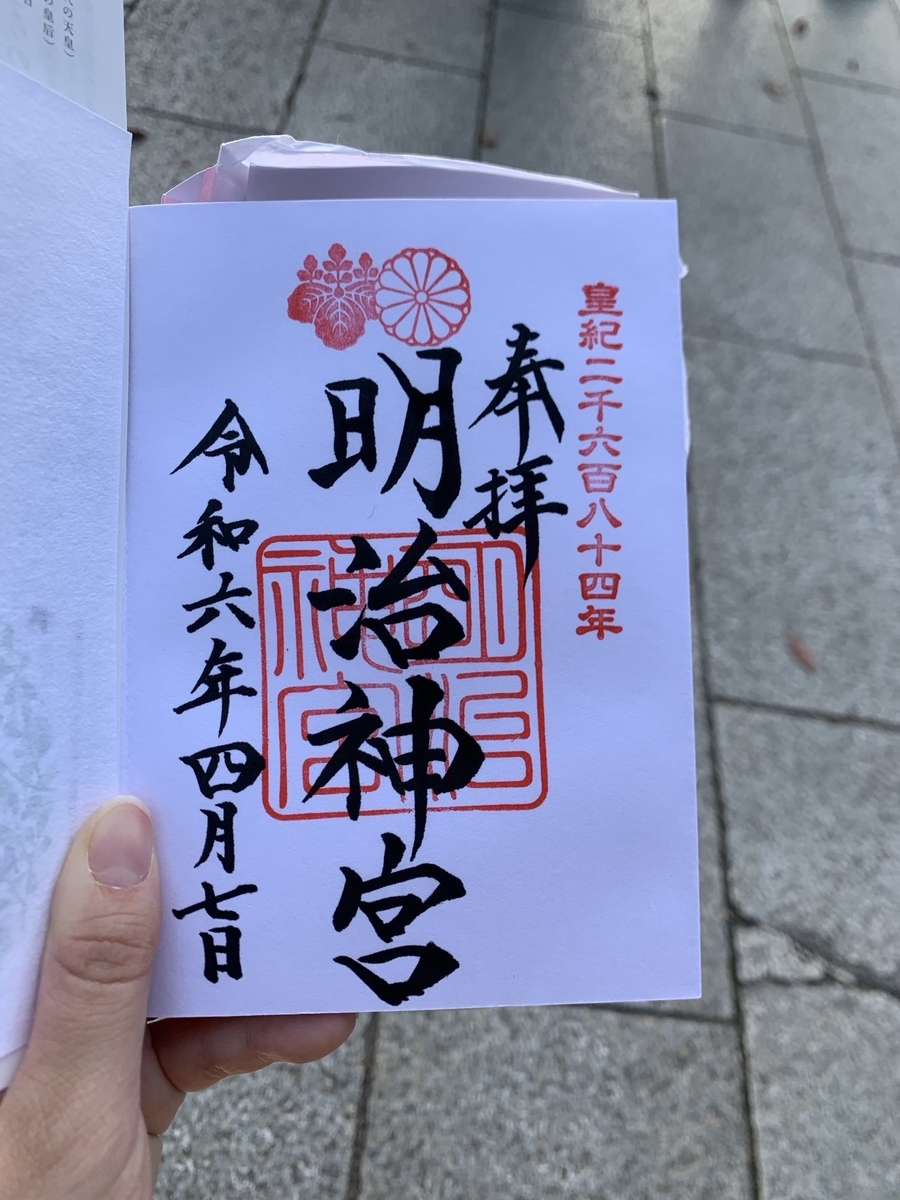 皇紀二千六百八十四年
奉拝
明治神宮
令和六年四月七日
の天皇）
の皇后）